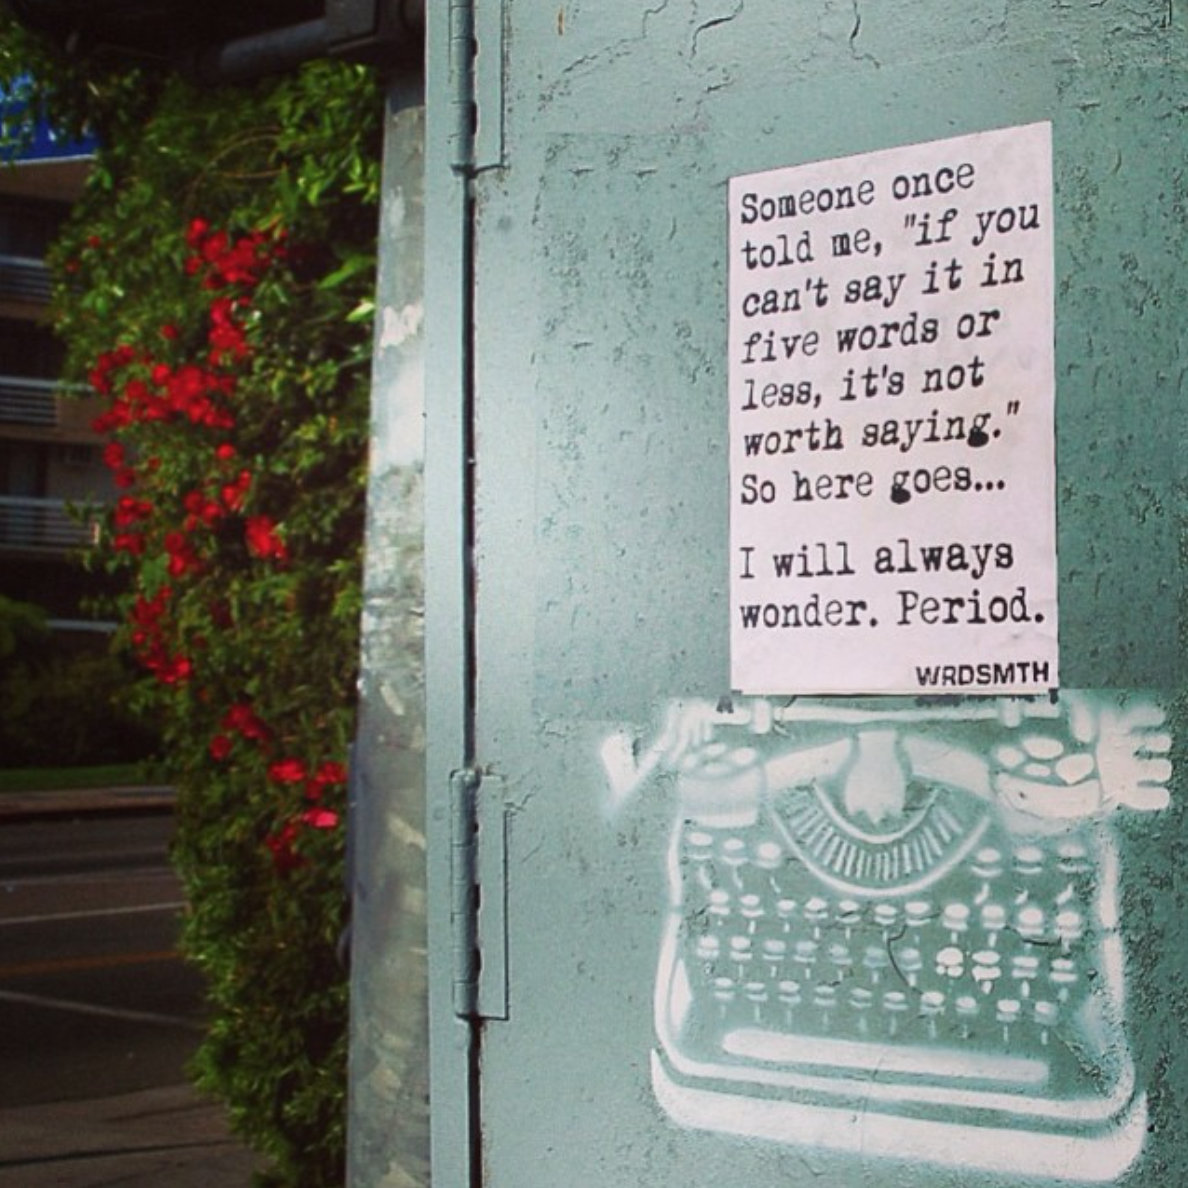 Someone once
told me, "if you
can't say it in
five words or
less, it's not
worth saying."
So here goes...
I will always
wonder. Period.
WRDSMTH